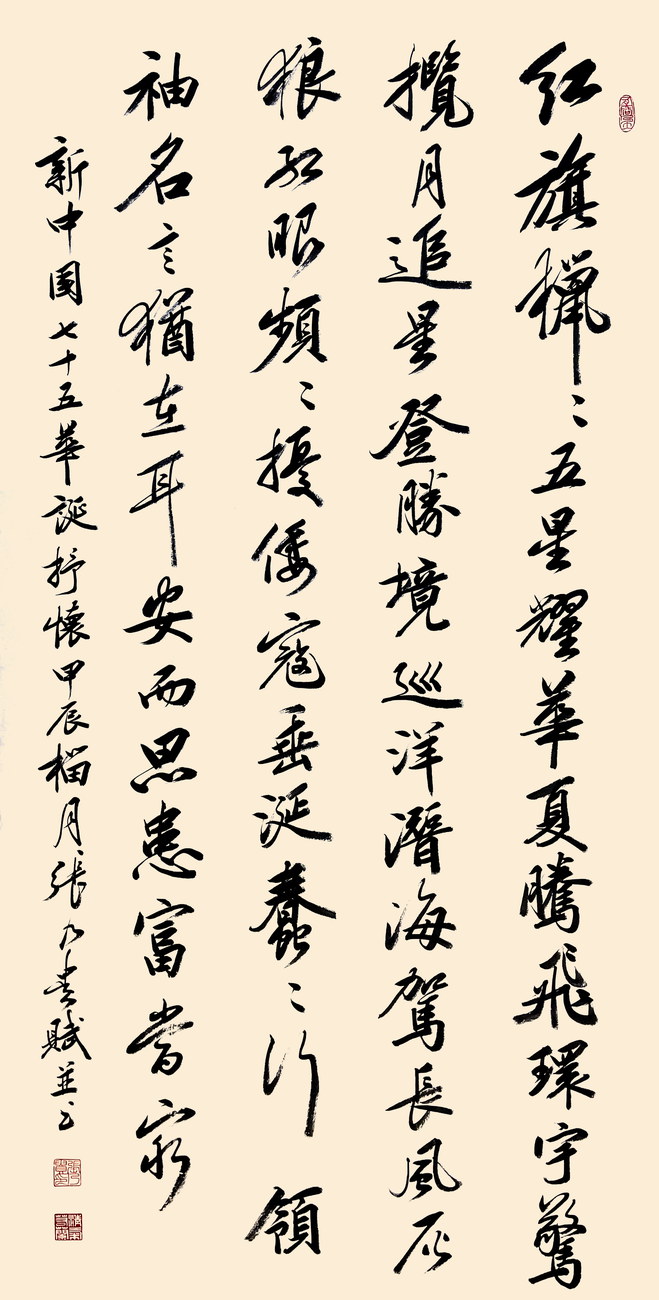 紅旗獵〻五星耀華夏騰飛環宇驚
攬月追星登勝境巡洋潛海駕長風灰
狼紅眼頻〻擾倭寇垂涎蠢〻行 領
袖名言猶在耳安而思患富當窮
新中國七十五華誕抒懷甲辰榴月張乃貴賦並书